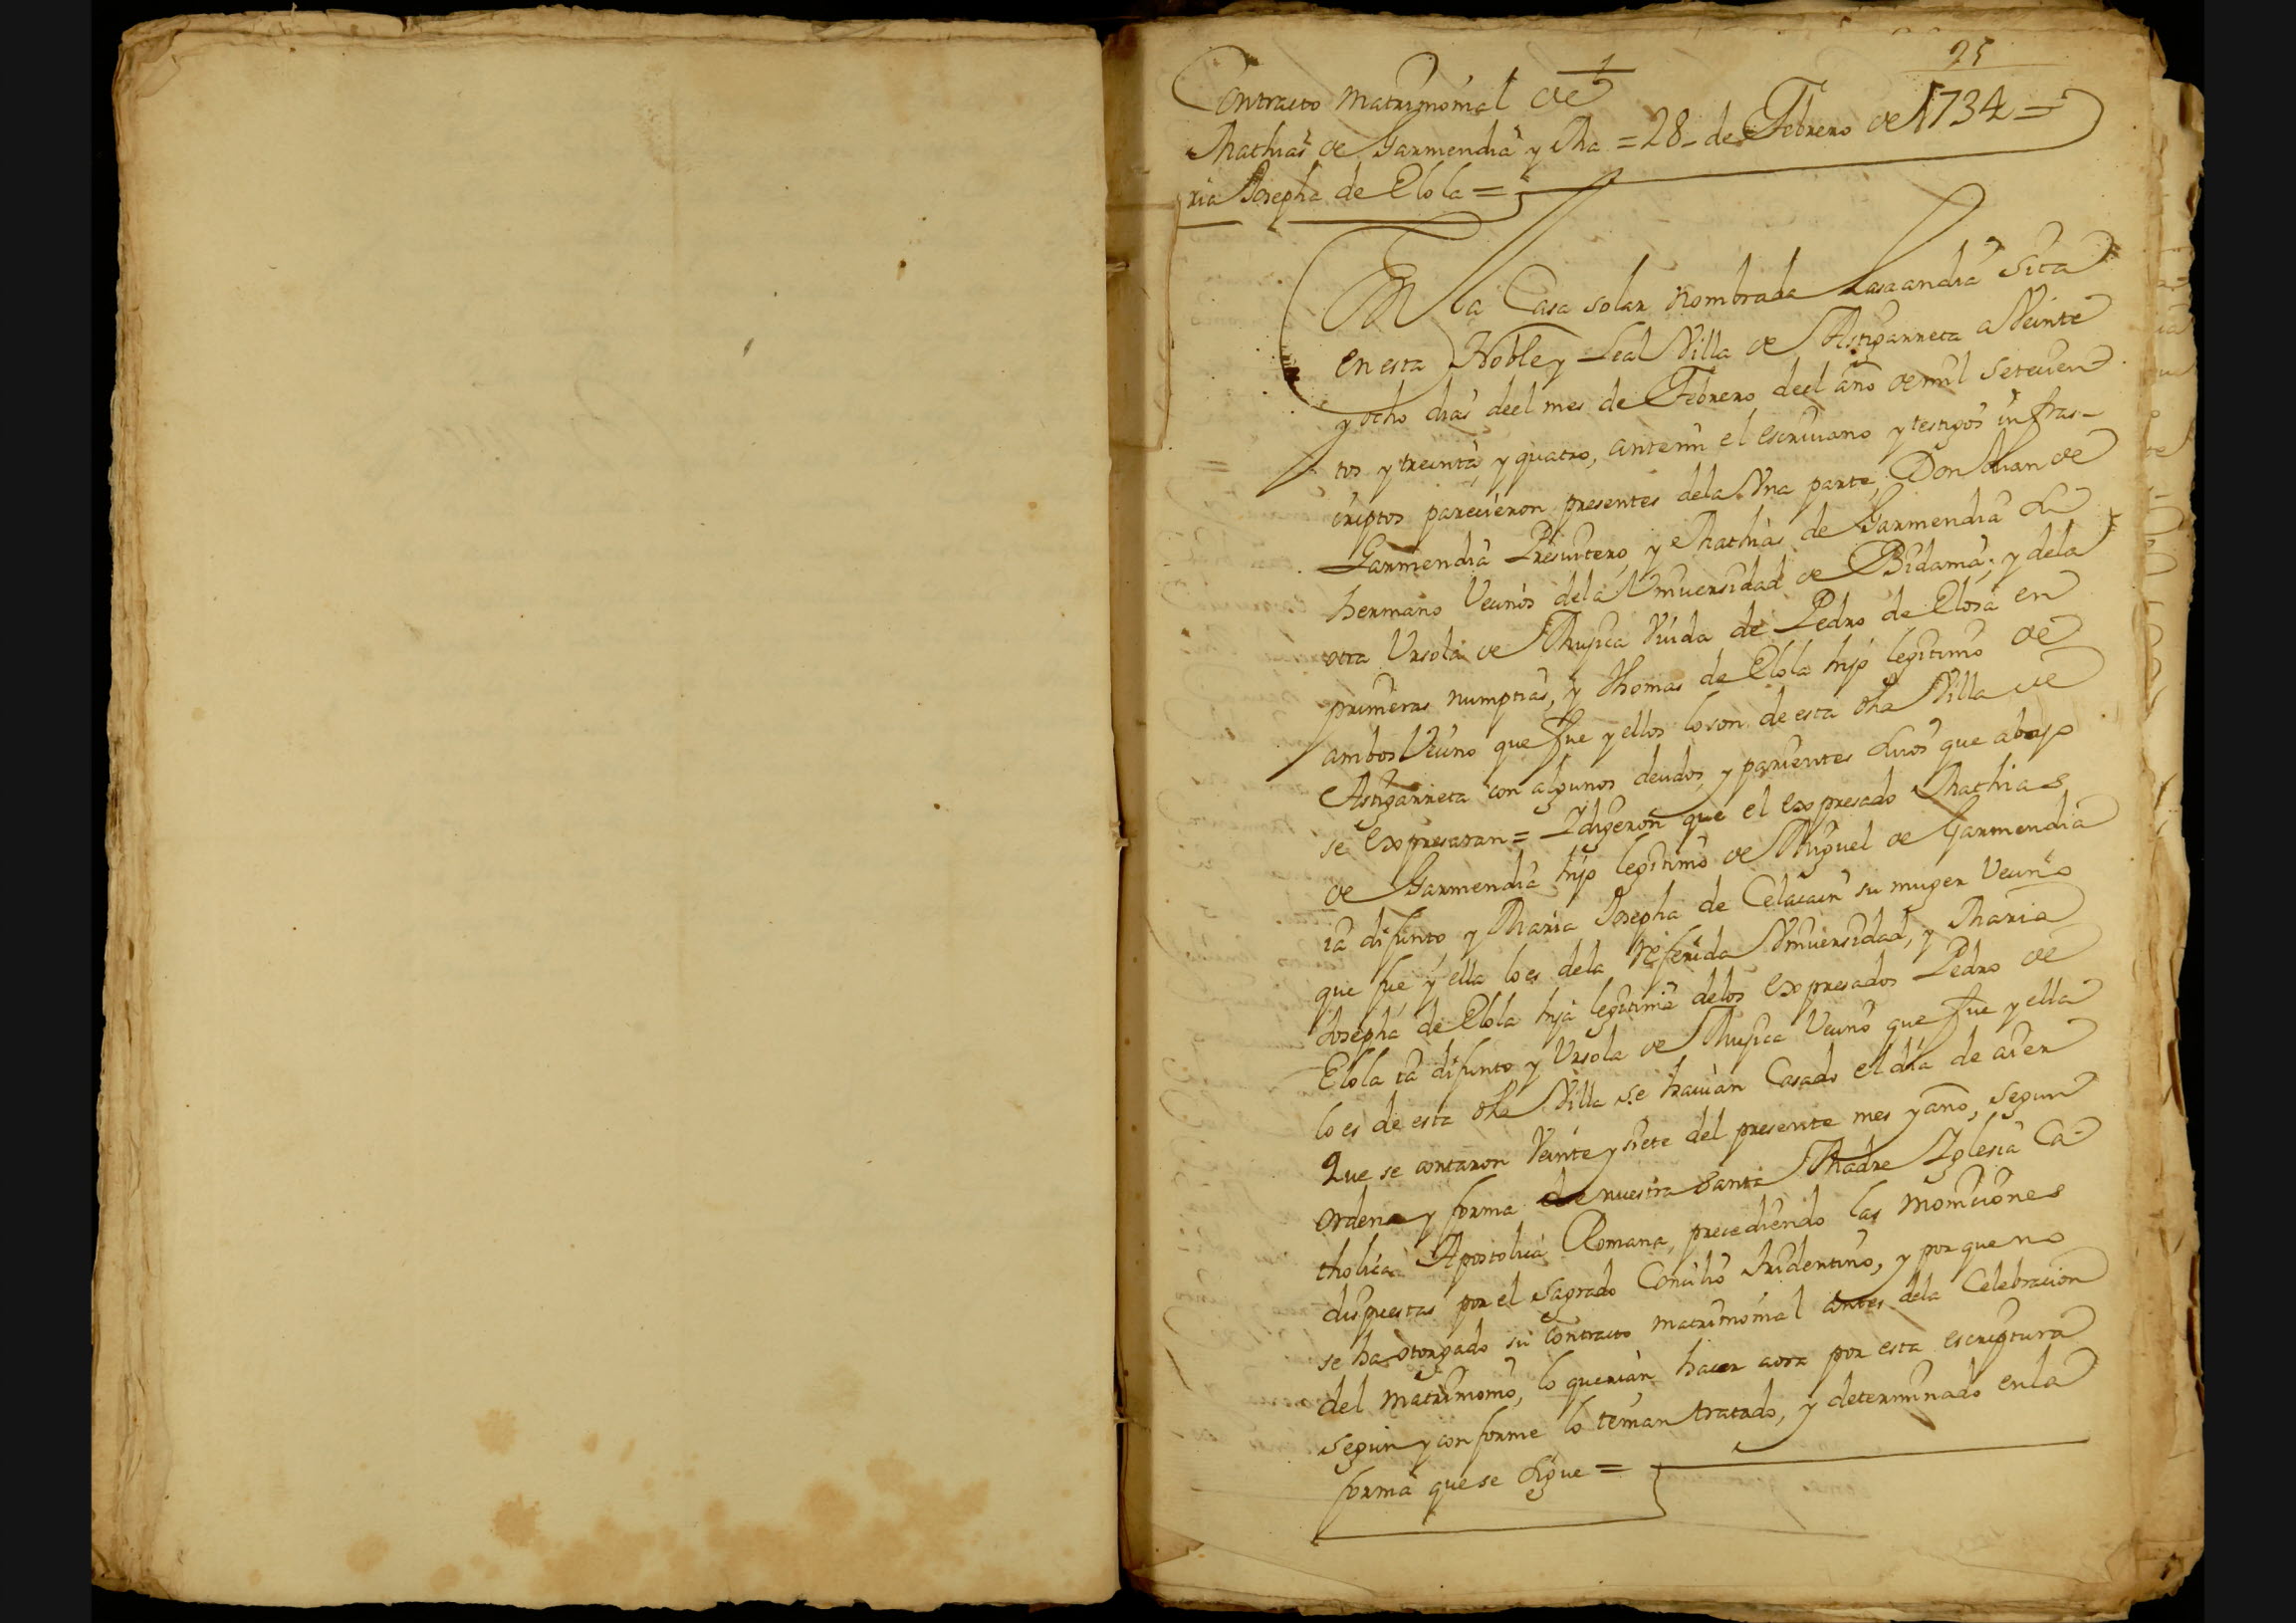 95
Contracto matrimonial de
Mathias de Garmendia y Ma = 28 de Febrero de 1734 =
ria Josepha de Elola =
En la Casa solar nombrada Lasaandia sita
en esta Noble y Leal Villa de Astigarreta a Veinte
y ocho dias deel mes de Febrero deel año de mil setecien
tos y treinta y quatro, antemi el escriuano y testigos infras-
criptos parecieron presentes dela Vna parte, Don Juan de
Garmendia Presuitero, y Mathias de Garmendia su
hermano Vecinos dela Vniuersidad de Bidama; y dela
otra Vrsola de Mujica Viuda de Pedro de Elosa en
primeras numptias, y Thomas de Elola hijo legitimo de
ambos Vecino que fue y ellos lo son de esta dha Villa de
Astigarreta con algunos deudos, y parientes suios que abajo
se expresaran = I digeron que el expresado Mathias
de Garmendia hijo legitimo de Miguel de Garmendia
ia difunto, y Maria Josepha de Celacain su muger Vecino
que fue y ella lo es dela referida Vniuersidad, y Maria
Josepha de Elola hija legitima delos expresados Pedro de
Elola ia difunto y Vrsola de Mujica Vecino que fue y ella
lo es de esta dha Villa se hauian Casado el dia de aier
Que se contaron Veinte y siete del presente mes y año, segun
orden y forma de nuestra Santa Madre Iglesia Ca-
tholica Apostolica Romana, precediendo las moniciones
dispuestas por el sagrado Concilio tridentino, y porque no
se ha otorgado su contracto matrimonial antes dela Celebracion
del matrimonio, lo querian hacer aora por esta escriptura
segun y conforme lo tenian tratado, y determinado en la
forma que se sigue =